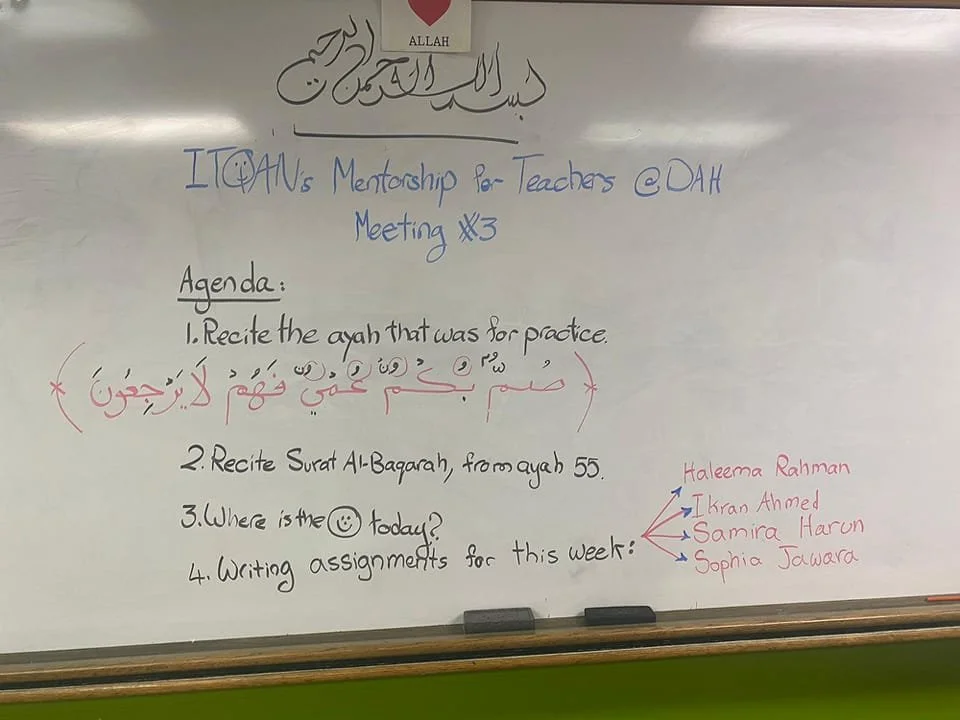 ALLAH
بسم الله الرحمن الرحيم
ITQAN's Mentorship for Teachers @DAH
Meeting #3
Agenda:
1. Recite the ayah that was for practice.
صُمٌّ بُكْمٌ عُمْيٌ فَهُمْ لَا يَرْجِعُونَ
2. Recite Surat Al-Baqarah, from ayah 55.
3. Where is the ☺ today?
4. Writing assignments for this week:
Haleema Rahman
Ikran Ahmed
Samira Harun
Sophia Jawara